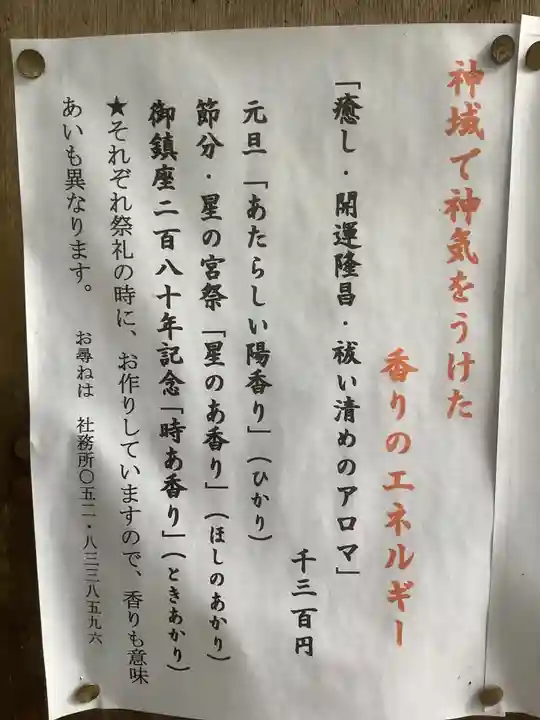 神域で神気をうけた
香りのエネルギー
「癒し・開運隆昌・祓い清めのアロマ」
千三百円
元旦「あたらしい陽香り」(ひかり)
節分・星の宮祭「星のあ香り」(ほしのあかり)
御鎮座二百八十年記念「時あ香り」(ときあかり)
★それぞれ祭礼の時に、お作りしていますので、香りも意味
あいも異なります。
お尋ねは 社務所〇五二・八三三八五九六